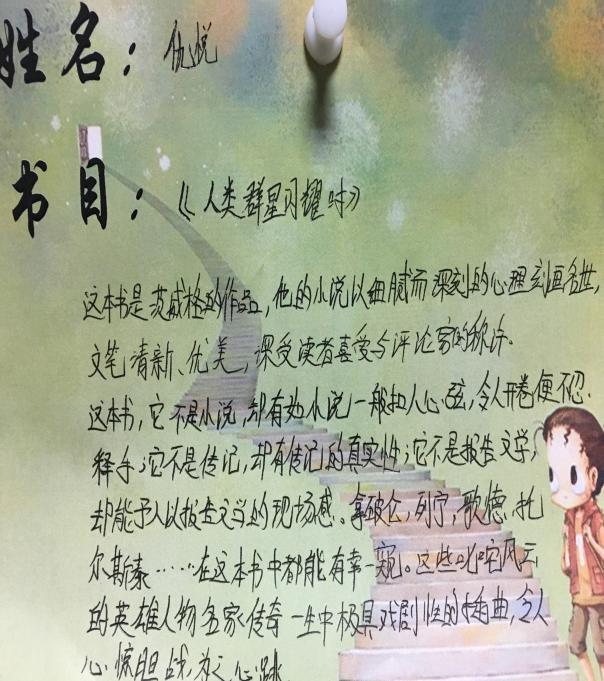 姓名：仇悦
书目：《人类群星闪耀时》
这本书是茨威格的作品，他的小说以细腻而深刻的心理刻画名世，
文笔清新、优美，深受读者喜爱与评论家的称许。
这本书，它不是小说，却有如小说一般扣人心弦，令人开卷便不忍
释手；它不是传记，却有传记的真实性；它不是报告文学，
却能予人以报告文学的现场感。拿破仑，列宁，歌德，托
尔斯泰……在这本书中都能有幸一窥。这些叱咤风云
的英雄人物名家传奇一生中极具戏剧性的插曲，令人
心惊胆战，为之心跳